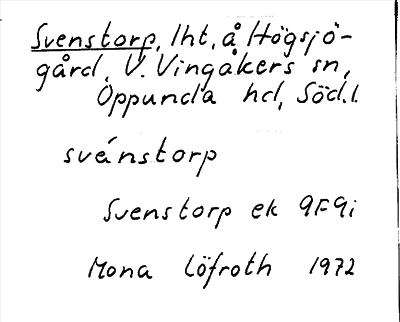 Svenstorp, lht, å Högsjö-
gård, V. Vingåkers sn,
Oppunda hd, Söd.l.
svénstorp
Svenstorp ek 9F9i
Mona Löfroth 1972